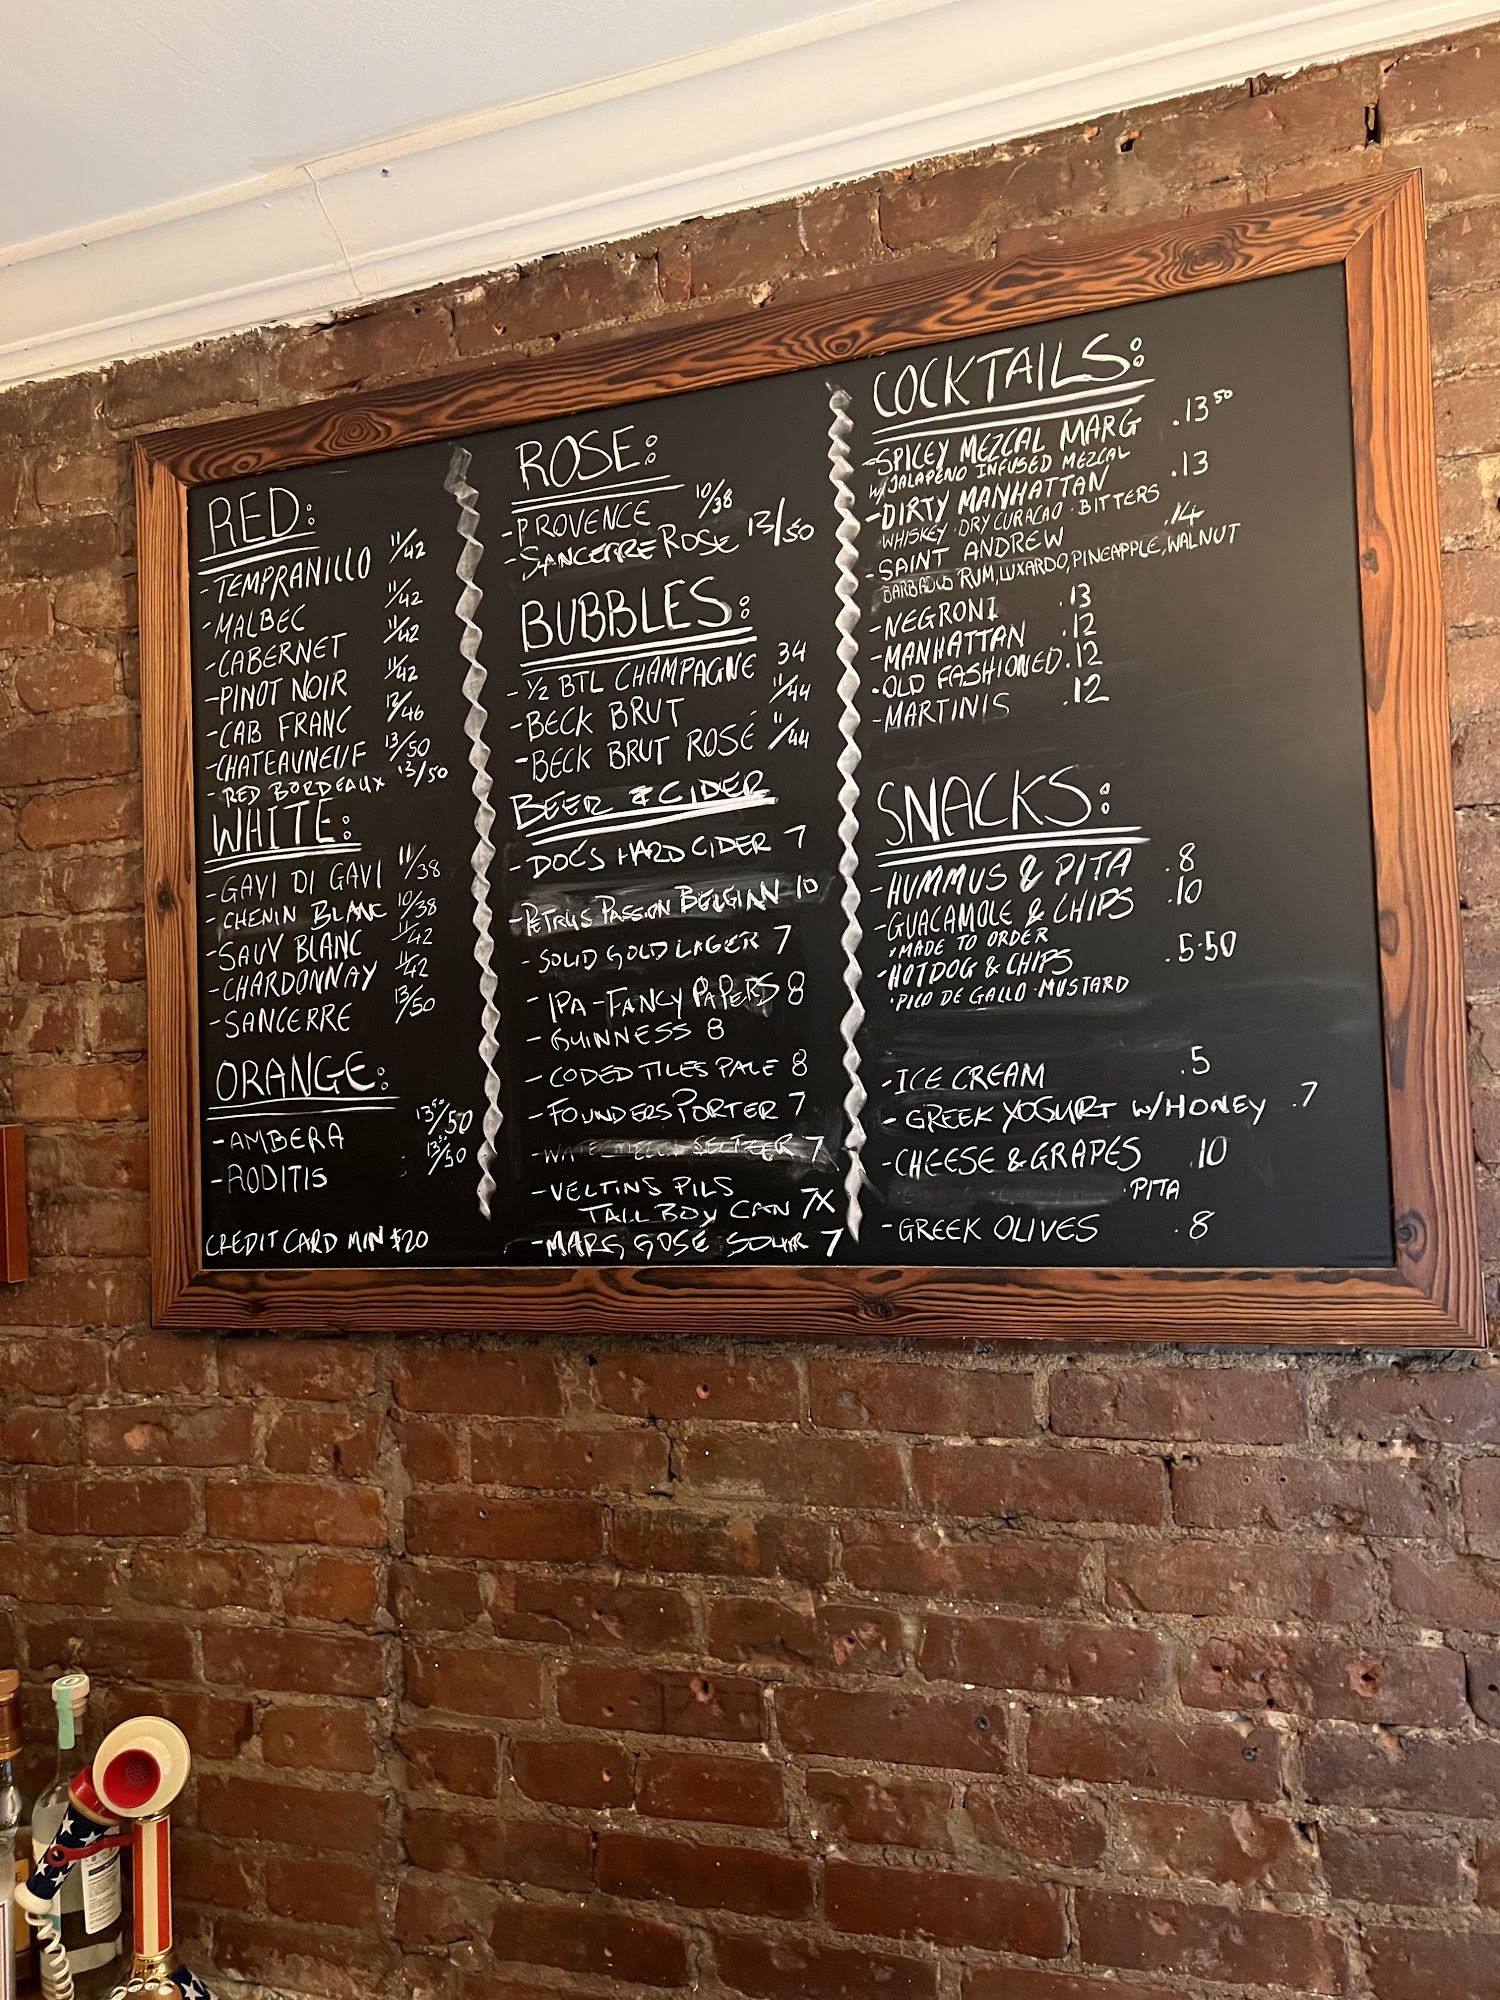 RED:
-TEMPRANILLO 11/42
-MALBEC 11/42
-CABERNET 11/42
-PINOT NOIR 11/42
-CAB FRANC 12/46
-CHATEAUNEUF 13/50
-RED BORDEAUX 13/50
WHITE:
-GAVI DI GAVI 11/38
-CHENIN BLANC 10/38
-SAUV BLANC 11/42
-CHARDONNAY 11/42
-SANCERRE 13/50
ORANGE:
-AMBERA 13⁵⁰/50
-RODITIS 13⁵⁰/50
CREDIT CARD MIN $20
ROSE:
-PROVENCE 10/38
-SANCERRE ROSE 13/50
BUBBLES:
-½ BTL CHAMPAGNE 34
-BECK BRUT 11/44
-BECK BRUT ROSÉ 11/44
BEER & CIDER
-DOC'S HARD CIDER 7
-PETRUS PASSION BELGIAN 10
-SOLID GOLD LAGER 7
-IPA-FANCY PAPERS 8
-GUINNESS 8
-CODED TILES PALE 8
-FOUNDERS PORTER 7
SELTZER 7
-VELTINS PILS
TALL BOY CAN 7X
-MARG GOSÉ SOUR 7
COCKTAILS:
-SPICEY MEZCAL MARG .13⁵⁰
W/JALAPENO INFUSED MEZCAL
-DIRTY MANHATTAN .13
·WHISKEY·DRY CURACAO·BITTERS
-SAINT ANDREW .14
BARBADOS RUM, LUXARDO, PINEAPPLE, WALNUT
-NEGRONI .13
-MANHATTAN .12
·OLD FASHIONED .12
-MARTINIS .12
SNACKS:
-HUMMUS & PITA .8
-GUACAMOLE & CHIPS .10
*MADE TO ORDER
-HOTDOG & CHIPS .5.50
·PICO DE GALLO·MUSTARD
-ICE CREAM .5
-GREEK YOGURT W/HONEY .7
-CHEESE & GRAPES .10
·PITA
-GREEK OLIVES .8